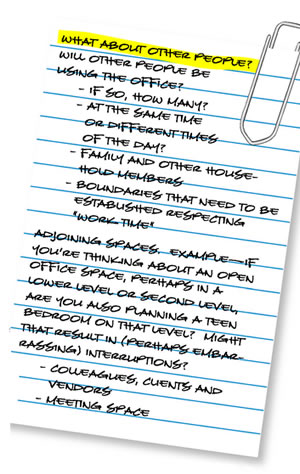 WHAT ABOUT OTHER PEOPLE?
WILL OTHER PEOPLE BE
USING THE OFFICE?
- IF SO, HOW MANY?
- AT THE SAME TIME
OR DIFFERENT TIMES
OF THE DAY?
- FAMILY AND OTHER HOUSE-
HOLD MEMBERS
- BOUNDARIES THAT NEED TO BE
ESTABLISHED RESPECTING
"WORK TIME"
ADJOINING SPACES, EXAMPLE—IF
YOU'RE THINKING ABOUT AN OPEN
OFFICE SPACE, PERHAPS IN A
LOWER LEVEL OR SECOND LEVEL,
ARE YOU ALSO PLANNING A TEEN
BEDROOM ON THAT LEVEL? MIGHT
THAT RESULT IN (PERHAPS EMBAR-
RASSING) INTERRUPTIONS?
- COLLEAGUES, CLIENTS AND
VENDORS
- MEETING SPACE